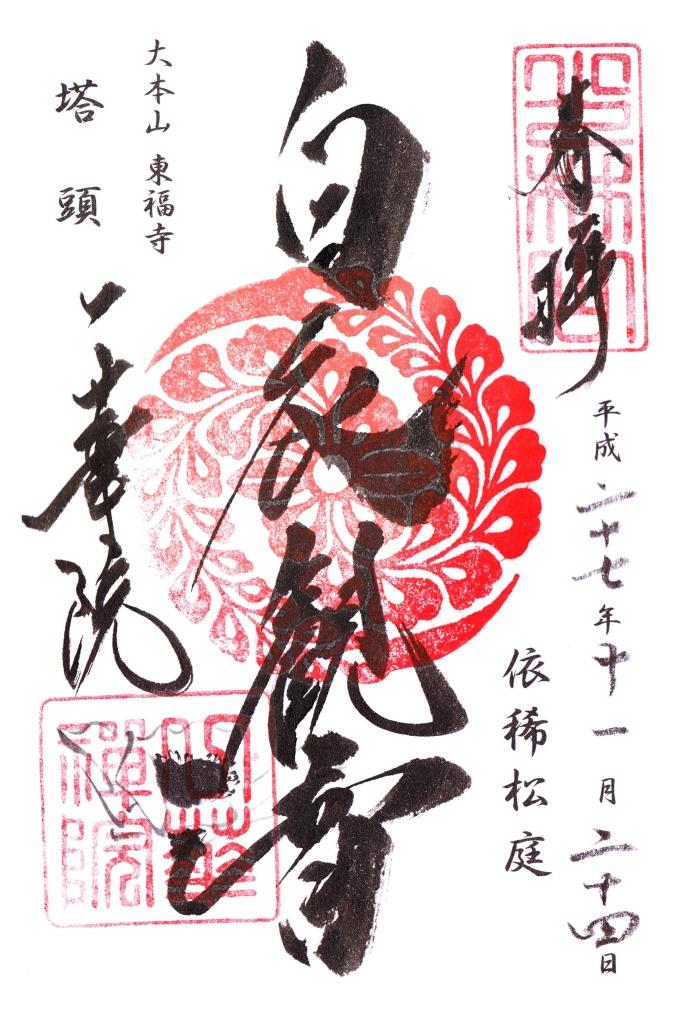 奉拝
平成二十七年十一月二十四日
依稀松庭
白衣觀音
大本山 東福寺
塔頭
一華院
一華
禅院